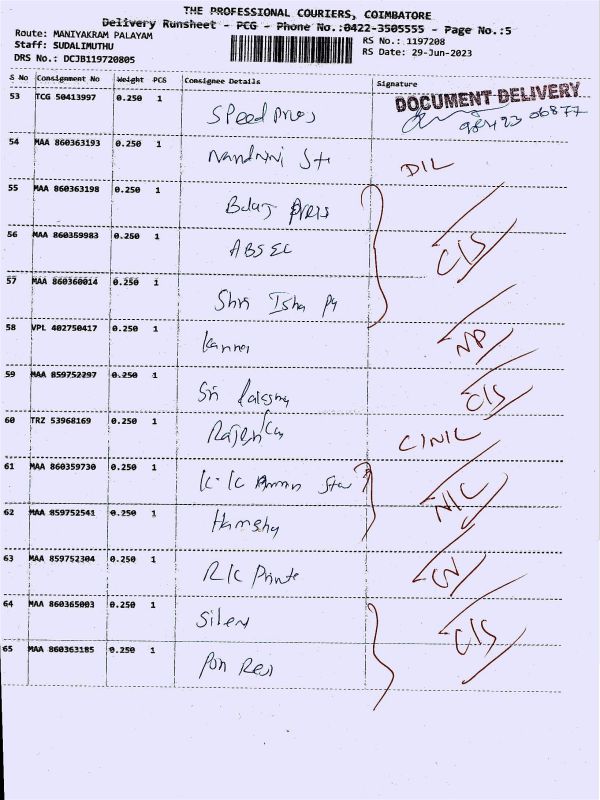 THE PROFESSIONAL COURIERS, COIMBATORE
Delivery Runsheet - PCG - Phone No.:0422-3505555 - Page No.:5
Route: MANIYAKRAM PALAYAM
RS No.: 1197208
Staff: SUDALIMUTHU
RS Date: 29-Jun-2023
DRS No.: DCJB119720805
S No Consignment No Weight PCS Consignee Details Signature
DOCUMENT DELIVERY
53 TCG 50413997 0.250 1 Speed
54 MAA 860363193 0.250 1 Nandhini DIL
55 MAA 860363198 0.250 1 Press
56 MAA 860359983 0.250 1 ABSEC C/S
57 MAA 860360014 0.250 1 Shri Isha
58 VPL 402750417 0.250 1 Kannan NP
59 MAA 859752297 0.250 1 Sri C/S
60 TRZ 53968169 0.250 1 Rajesh
61 MAA 860359730 0.250 1 K.K
62 MAA 859752541 0.250 1 NIC
63 MAA 859752304 0.250 1 R/C
64 MAA 860365003 0.250 1 Silen C/S
65 MAA 860363185 0.250 1 Pon